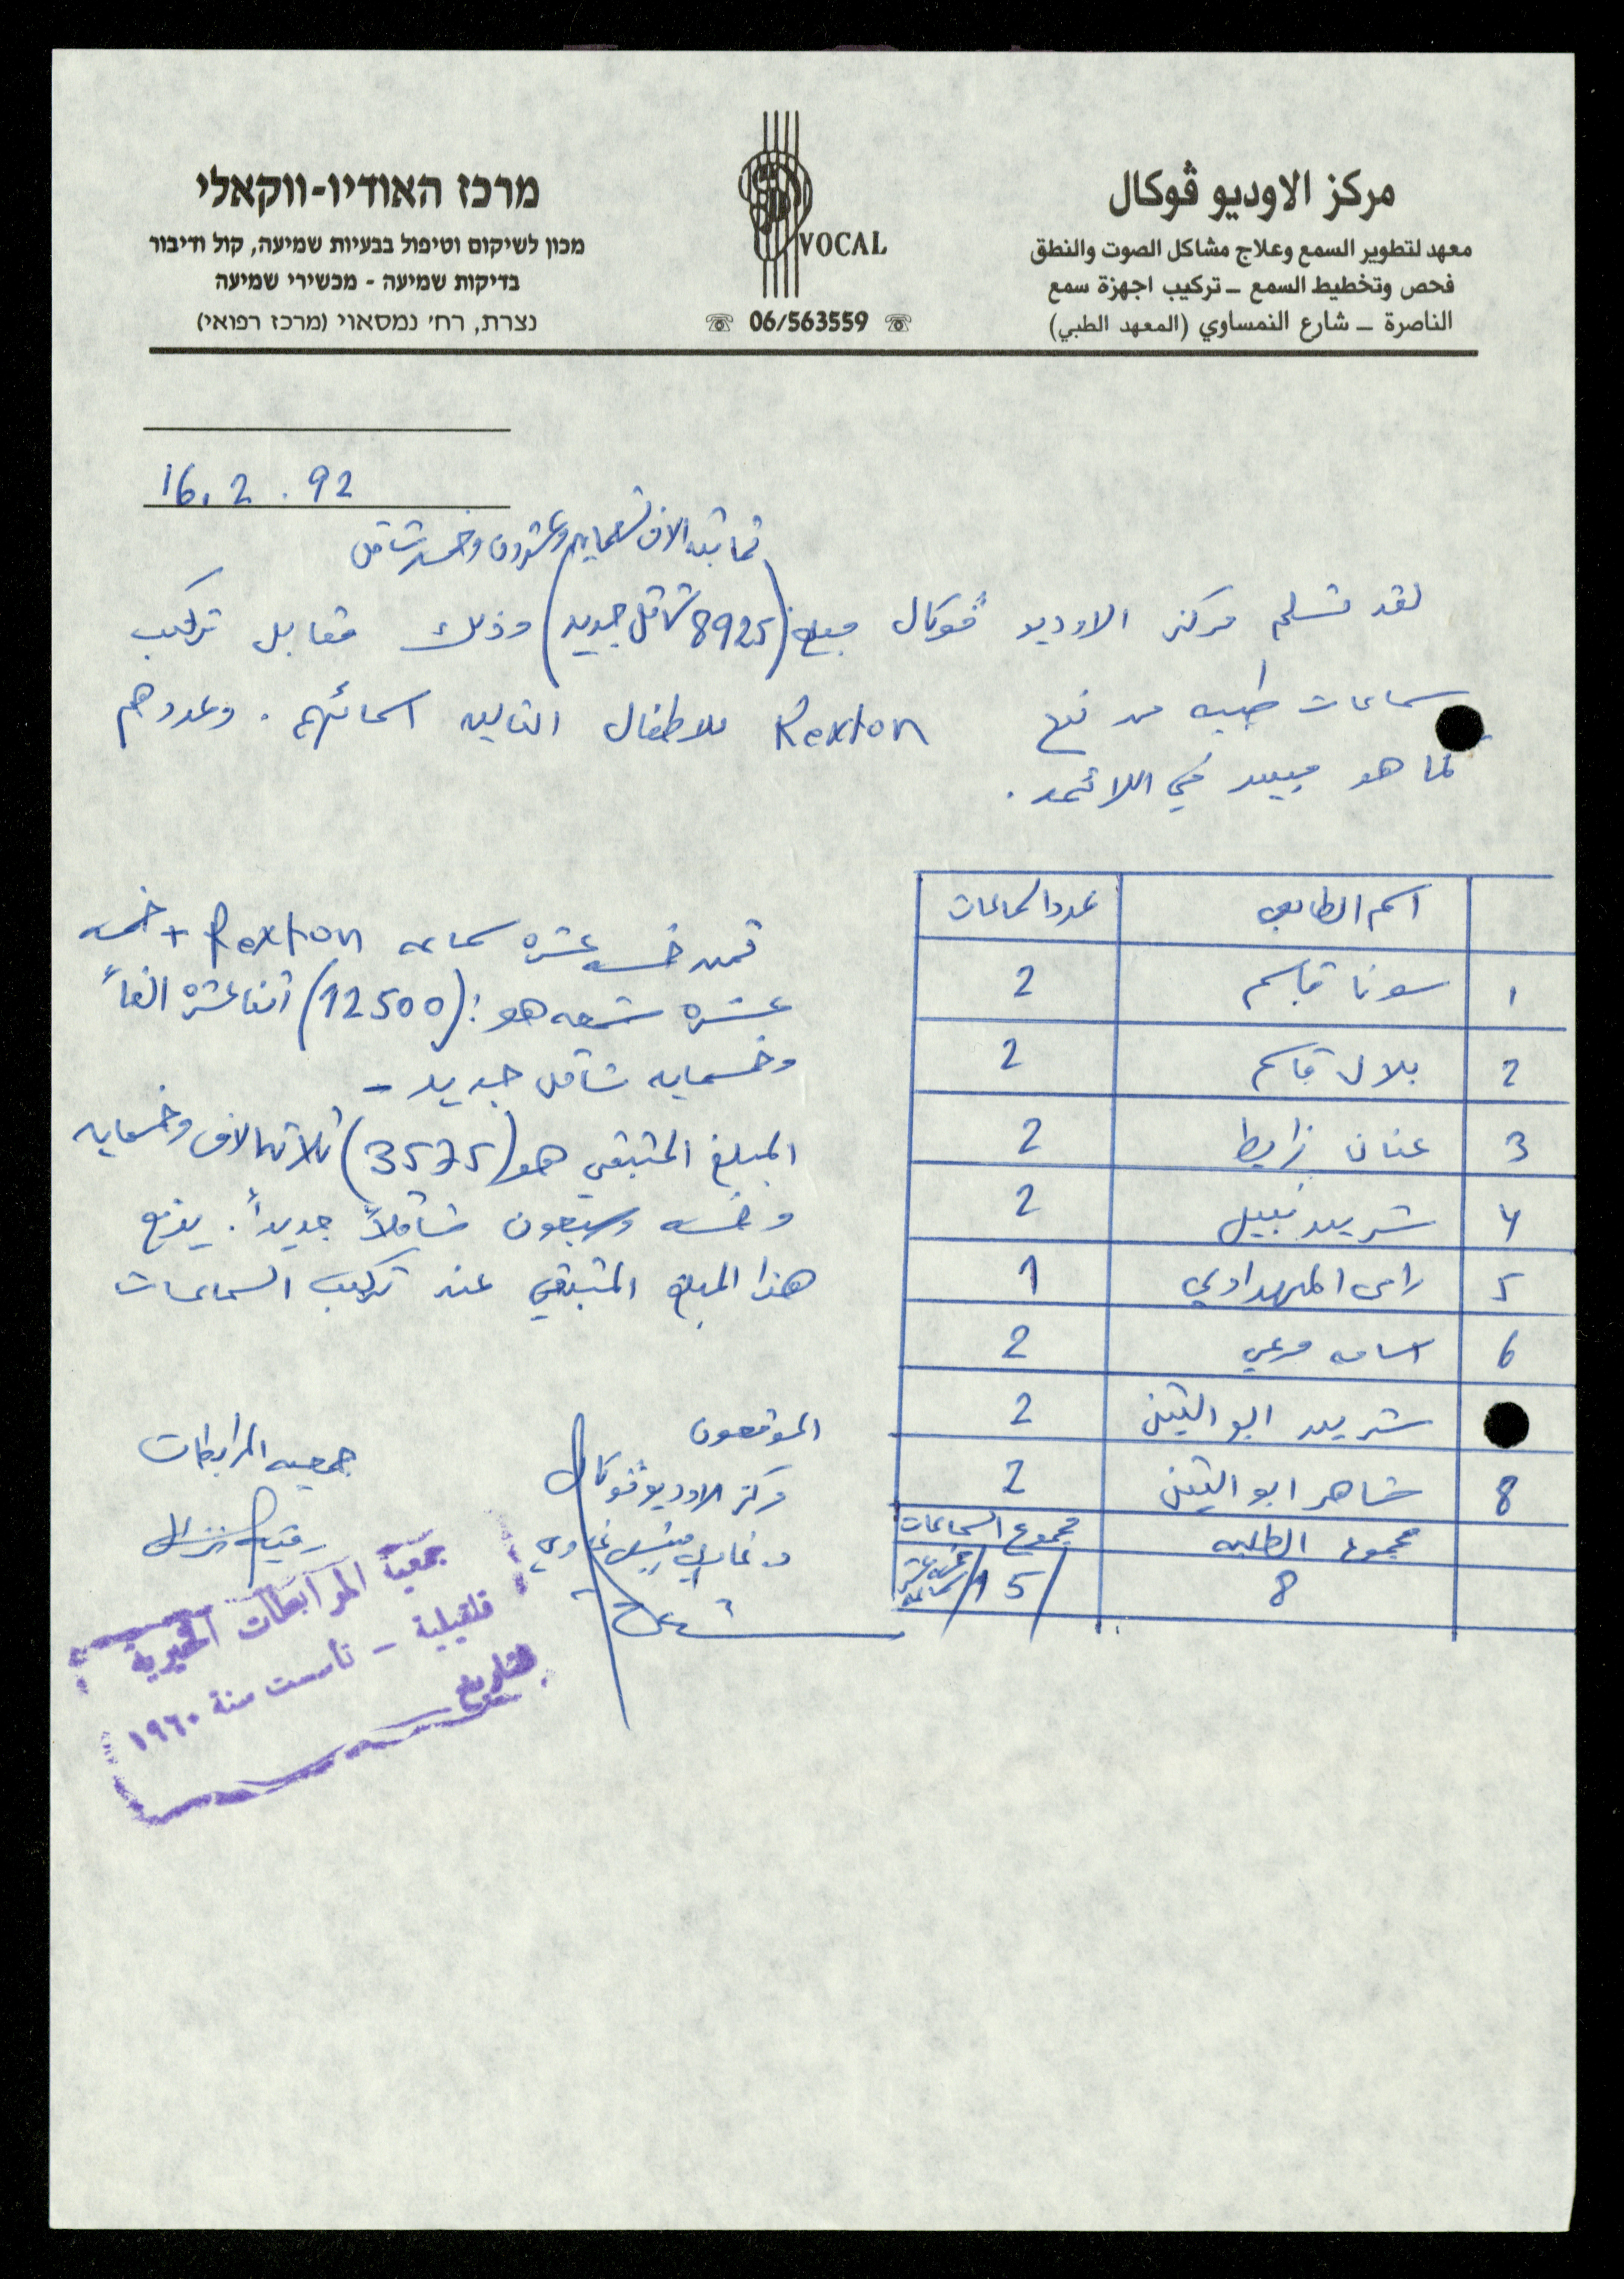 مركز الاوديو ڤوكال
معهد لتطوير السمع وعلاج مشاكل الصوت والنطق
فحص وتخطيط السمع – تركيب اجهزة سمع
الناصرة – شارع النمساوي (المعهد الطبي)
VOCAL
☏ 06/563559 ☏
מרכז האודיו-ווקאלי
מכון לשיקום וטיפול בבעיות שמיעה, קול ודיבור
בדיקות שמיעה - מכשירי שמיעה
נצרת, רח' נמסאוי (מרכז רפואי)
16.2.92
ثمانية الاف تسعماية وعشرون وخمسة شاقل
لقد تسلم مركز الاوديو ڤوكال مبلغ (8925 شاقل جديد) وذلك مقابل تركيب
سماعات طبيه من نوع Rexton للاطفال التاليه اسمائهم . وعددهم
كما هو مبين في اللائحه .
اسم الطالب عدد السماعات
1 سونا قاسم 2
2 بلال قاسم 2
3 عنان زايط 2
4 شرين نبيل 2
5 رامي المهداوي 1
6 اسامه مرعي 2
شرين ابو التين 2
8 شاهر ابو التين 2
مجموع الطلبه مجموع السماعات
8 15/ خمسة عشر سماعه
ثمن خمسه عشره سماعه Rexton + خمسه
عشره شمعه هو: (12500) اثنا عشره الفاً
وخمسمايه شاقل جديد -
المبلغ المتبقي هو (3575) ثلاثة الاف وخمسمايه
وخمسه وسبعون شاقلاً جديداً. يدفع
هذا المبلغ المتبقي عند تركيب السماعات
الموقعون
مركز الاوديو ڤوكال
جمعيه المرابطات
جمعية المرابطات الخيرية
قلقيلية – تأسست سنة ١٩٦٠
التاريخ